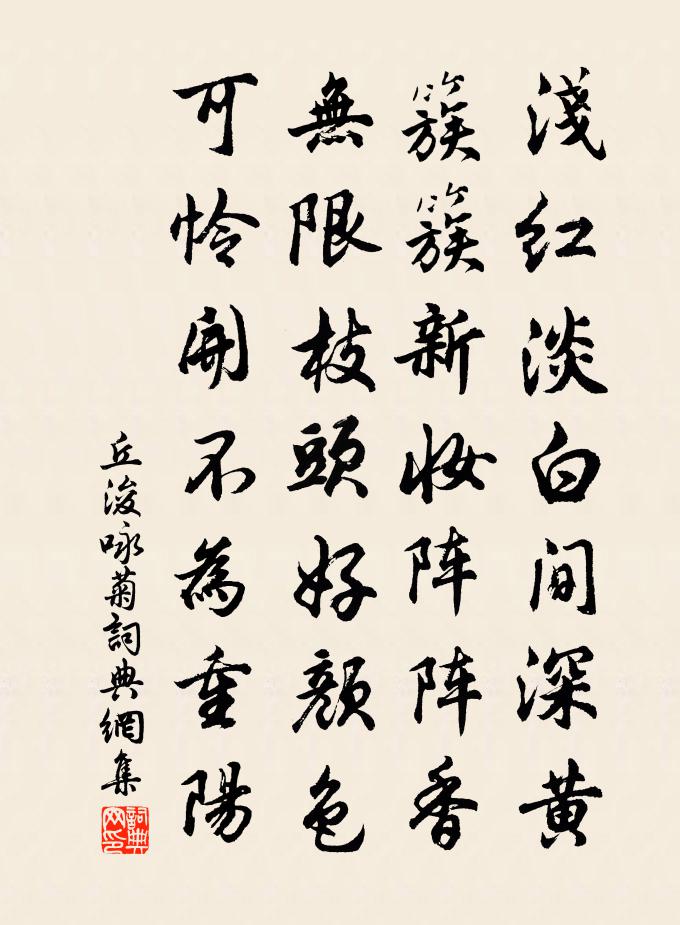 淺紅淡白間深黄
簇簇新妝阵阵香
無限枝頭好顔色
可憐開不為重陽
丘濬咏菊詞典網集
詞典網印